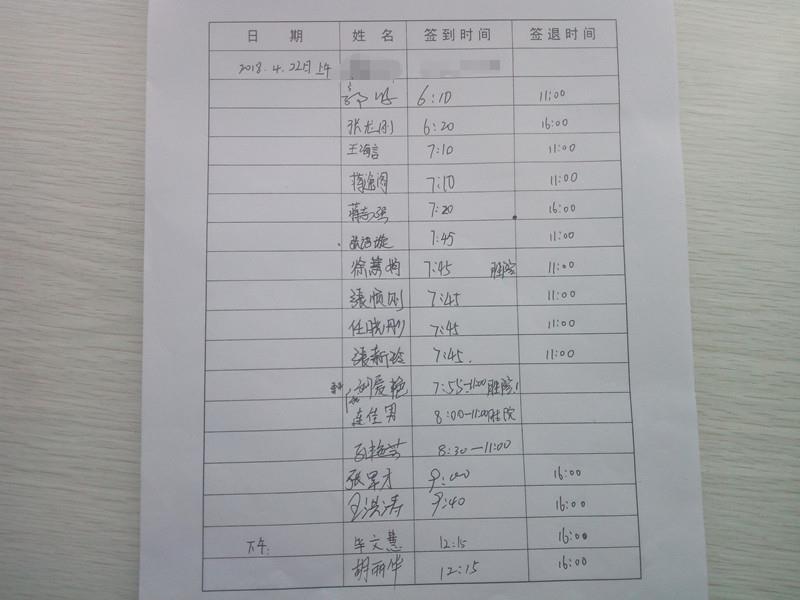 日 期 姓 名 签到时间 签退时间
2018.4.22日上午
6:10 11:00
张龙刚 6:20 16:00
王海言 7:10 11:00
7:10 11:00
蒋志强 7:20 16:00
7:45 11:00
徐慧梅 7:45 11:00
张顺刚 7:45 11:00
任晓刚 7:45 11:00
张新玲 7:45. 11:00
刘爱艳 7:55-11:00
连佳男 8:00-11:00
8:30-11:00
张军才 9:00 16:00
王洪涛 9:40 16:00
下午: 毕文慧 12:15 16:00
胡丽华 12:15 16:00